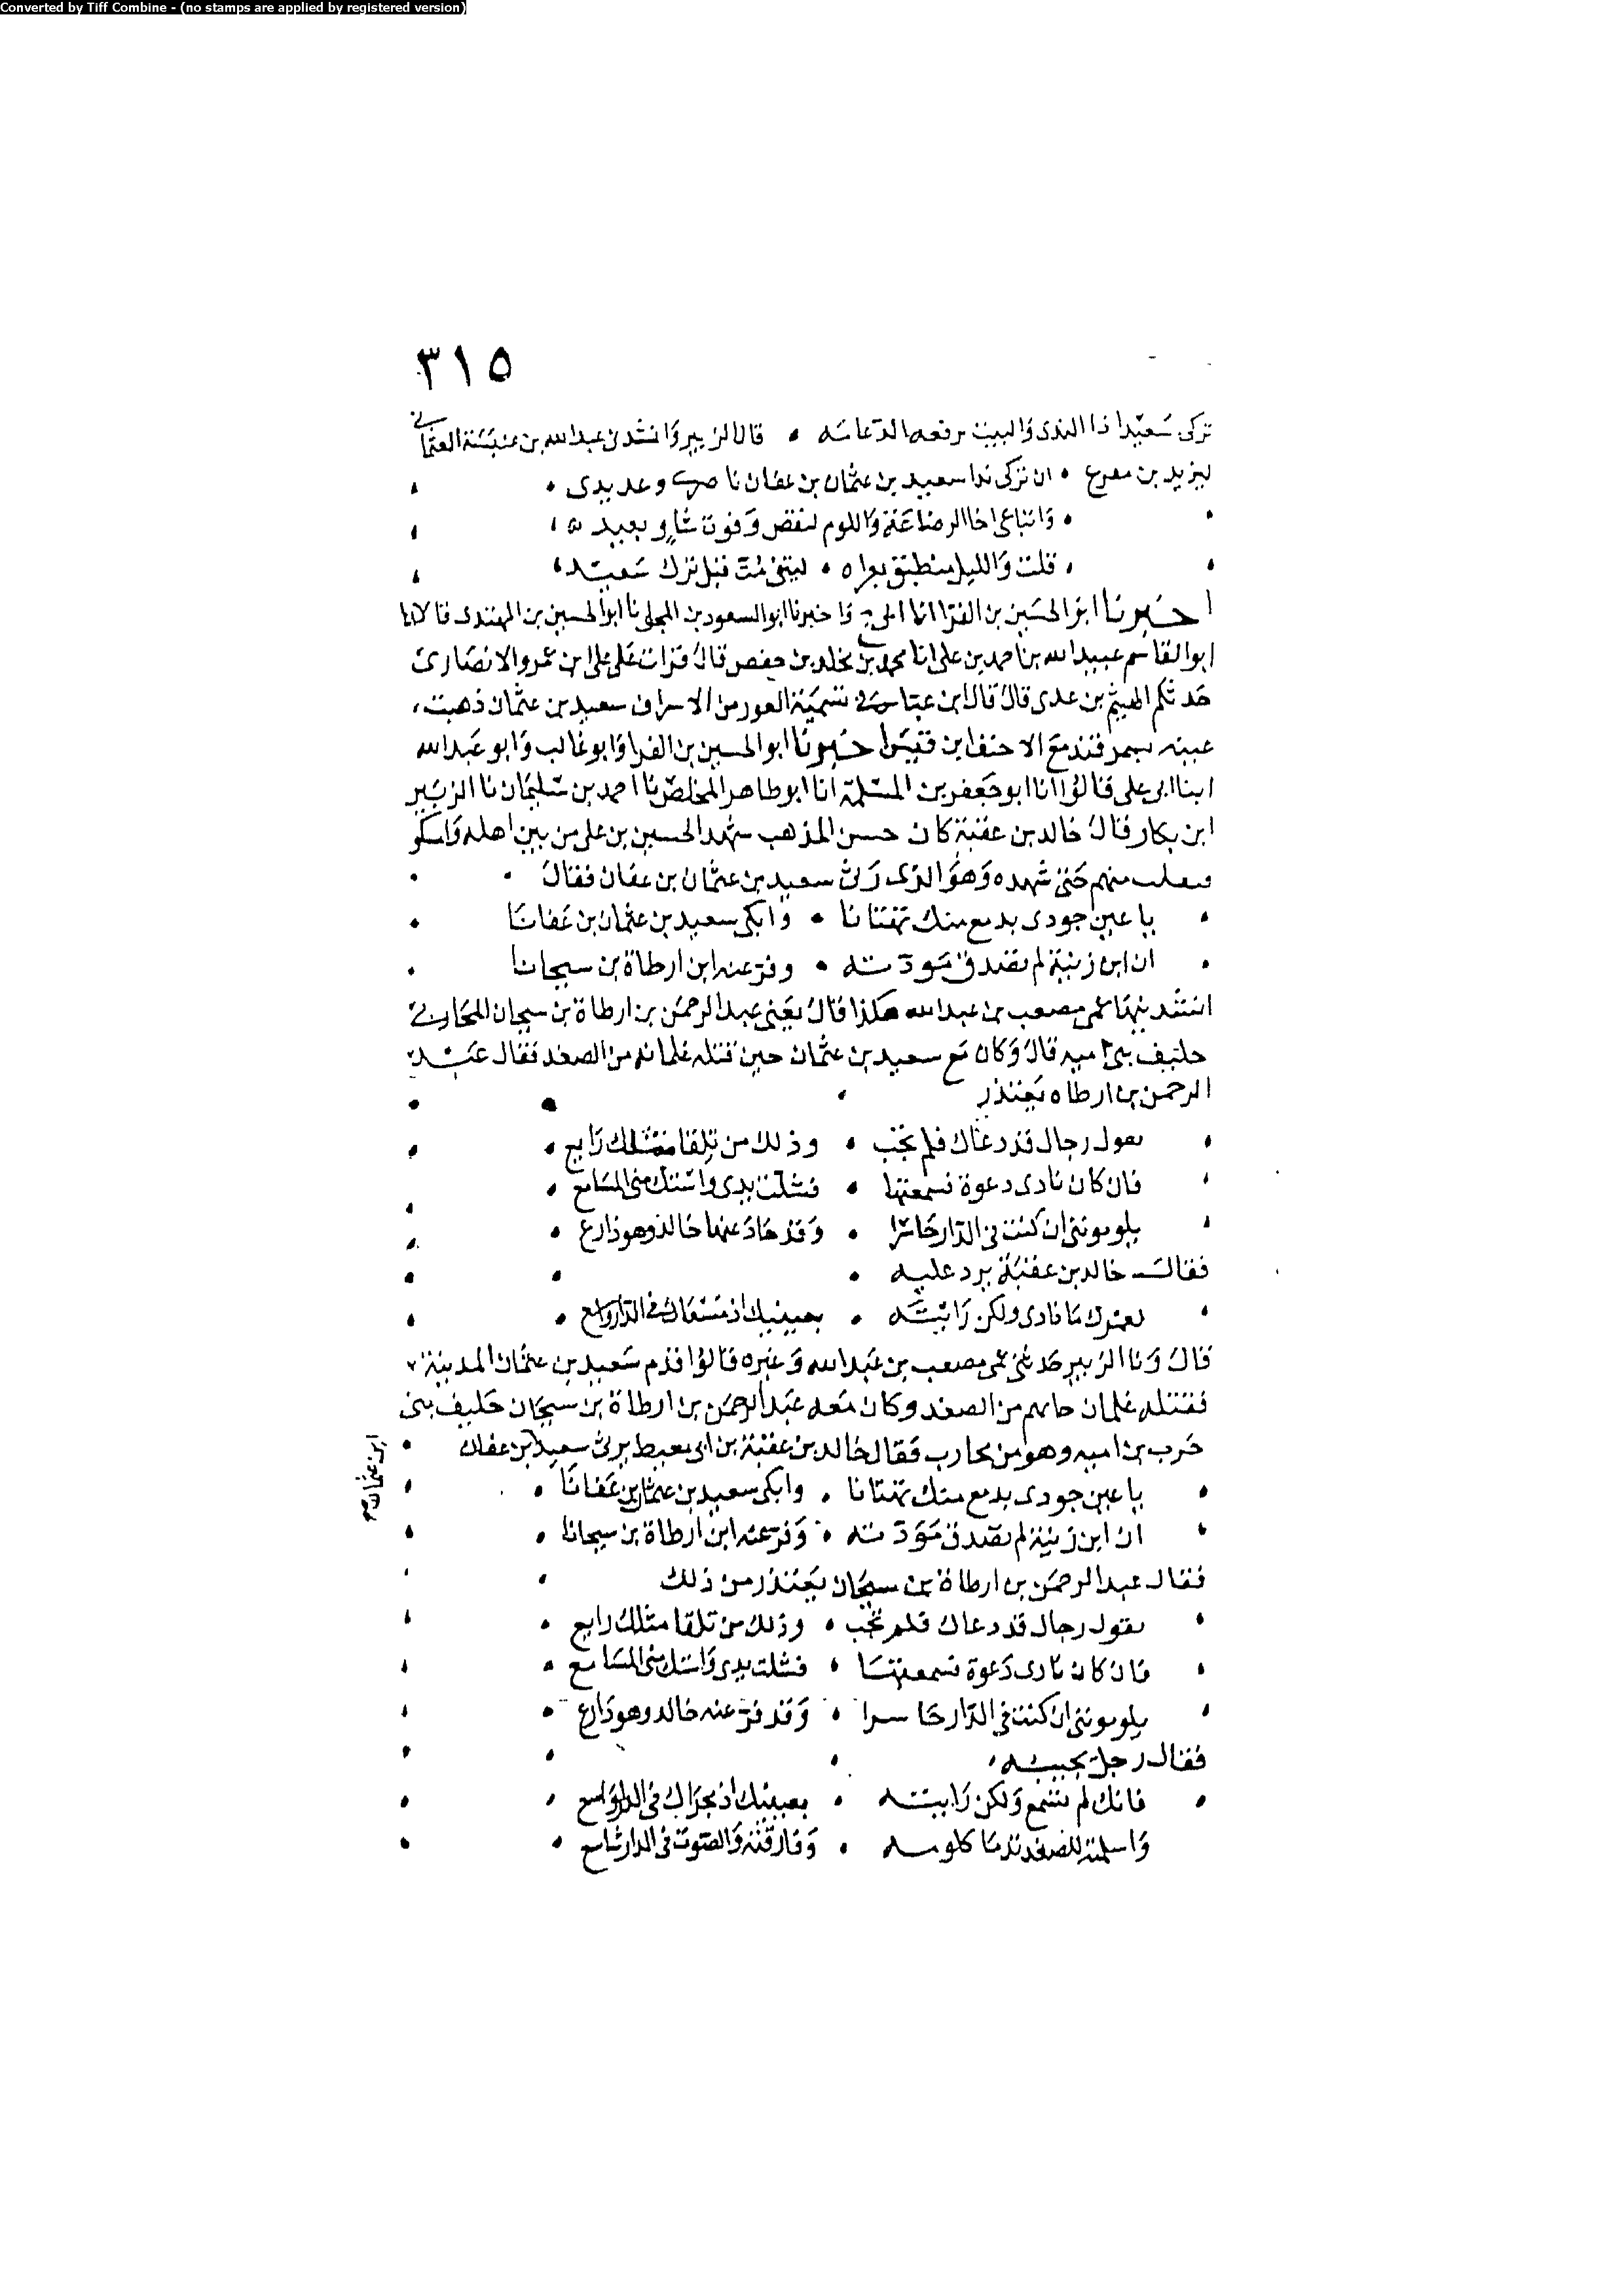 Converted by Tiff Combine - (no stamps are applied by registered version)
٣١٥
تركى سعيدا ذا الندى والبيت ترفعه الدعامه • قال الزبير وانشدن عبد الله بن عنبسة العثماني
ليزيد بن مفرع • ان تركى ندا سعيد بن عثمان بن عفان ناصرى وعديدى
واتباعى اخا الرضاعة واللوم لنقض وفوت شاو بعيد
قلت والليل مطبق بعراه • ليتنى مت قبل ترك سعيد
اخبرنا ابو الحسين بن الفرا انا ابى ح واخبرنا ابو السعود بن المجلى نا ابو الحسين بن المهتدى قالا انا
ابو القاسم عبيد الله بن احمد بن على انا محمد بن مخلد بن حفص قال قرات على على ابن عمرو الانصارى
حدثكم الهيثم بن عدى قال قال ابن عياش فى تسمية العور من الاسراف سعيد بن عثمان ذهبت
عينه بسمرقند مع الاحنف ابن قيس اخبرنا ابو الحسين بن الفرا وابو غالب وابو عبد الله
ابنا ابى على قالوا انا ابو جعفر بن المسلمة انا ابو طاهر المخلص نا احمد بن سليمان نا الزبير
ابن بكار قال خالد بن عقبة كان حسن المذهب شهد الحسين بن على من بين اهله
منهم حتى شهده وهو الذى رثى سعيد بن عثمان بن عفان فقال
يا عين جودى بدمع منك تهتانا • وابكى سعيد بن عثمان بن عفانا
ان ابن زينة لم تصدق مودته • وفر عنه ابن ارطاة بن سيحانا
انشدنيها عمى مصعب بن عبد الله هكذا قال يعنى عبد الرحمن بن ارطاة بن سيحان المحاربى
حليف بنى اميه قال وكان مع سعيد بن عثمان حين قتله غلمانه من الصغد فقال عبد
الرحمن بن ارطاه يعتذر
يقول رجال قد دعاك فلم تجب • وذلك من تلقا مثلك رايع
فان كان نادى دعوة فسمعتها • فشلت يدى واستك منى المسامع
يلوموننى ان كنت فى الدار حاسرا • وقد حاد عنها خالد وهو دارع
فقال خالد بن عقبة يرد عليه
لعمرك ما نادى ولكن رايته • بعينيك اذ مسعاك فى الدار واسع
قال ونا الزبير حدثنى عمى مصعب بن عبد الله وغيره قالوا قدم سعيد بن عثمان المدينة
فقتله غلمان جابهم من الصغد وكان معه عبد الرحمن بن ارطاة بن سيحان حليف بنى
حرب بن اميه وهو من محارب فقال خالد بن عقبة بن ابى معيط يرثى سعيد بن عفان
ابن عثمان صح
يا عين جودى بدمع منك تهتانا • وابكى سعيد بن عثمان بن عفانا
ان ابن زينة لم تصدق مودته • وفر عنه ابن ارطاة بن سيحانا
فقال عبد الرحمن بن ارطاة بن سيحان يعتذر من ذلك
يقول رجال قد دعاك فلم تجب • وذلك من تلقا مثلك رايع
فان كان نادى دعوة فسمعتها • فشلت يدى واستك منى المسامع
يلوموننى ان كنت فى الدار حاسرا • وقد فر عنه خالد وهو دارع
فقال رجل يجيبه
فانك لم تسمع ولكن رايته • بعينيك اذ مجراك فى الدار واسع
واسلمته للصغد تدما كلومه • وفارقته والصوت فى الدار شاسع